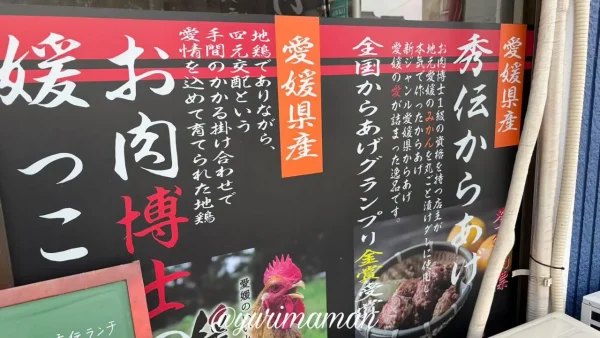 愛媛県産
秀伝からあげ
お肉博士1級の資格を持つ店主が
地元愛媛のみかんを丸ごと漬けダレに使用し
本気で作ったからあげ
新ジャンル愛媛県からあげ
愛媛の愛が詰まった逸品です。
全国からあげグランプリ金賞受賞
愛媛県産
地鶏でありながら、
四元交配という
手間のかかる掛け合わせで
愛情を込めて育てられた地鶏
愛媛の
お肉博士の
媛っこ
ランチ
@yurimaman